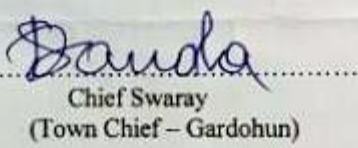 Banda
Chief Swaray
(Town Chief – Gardohun)